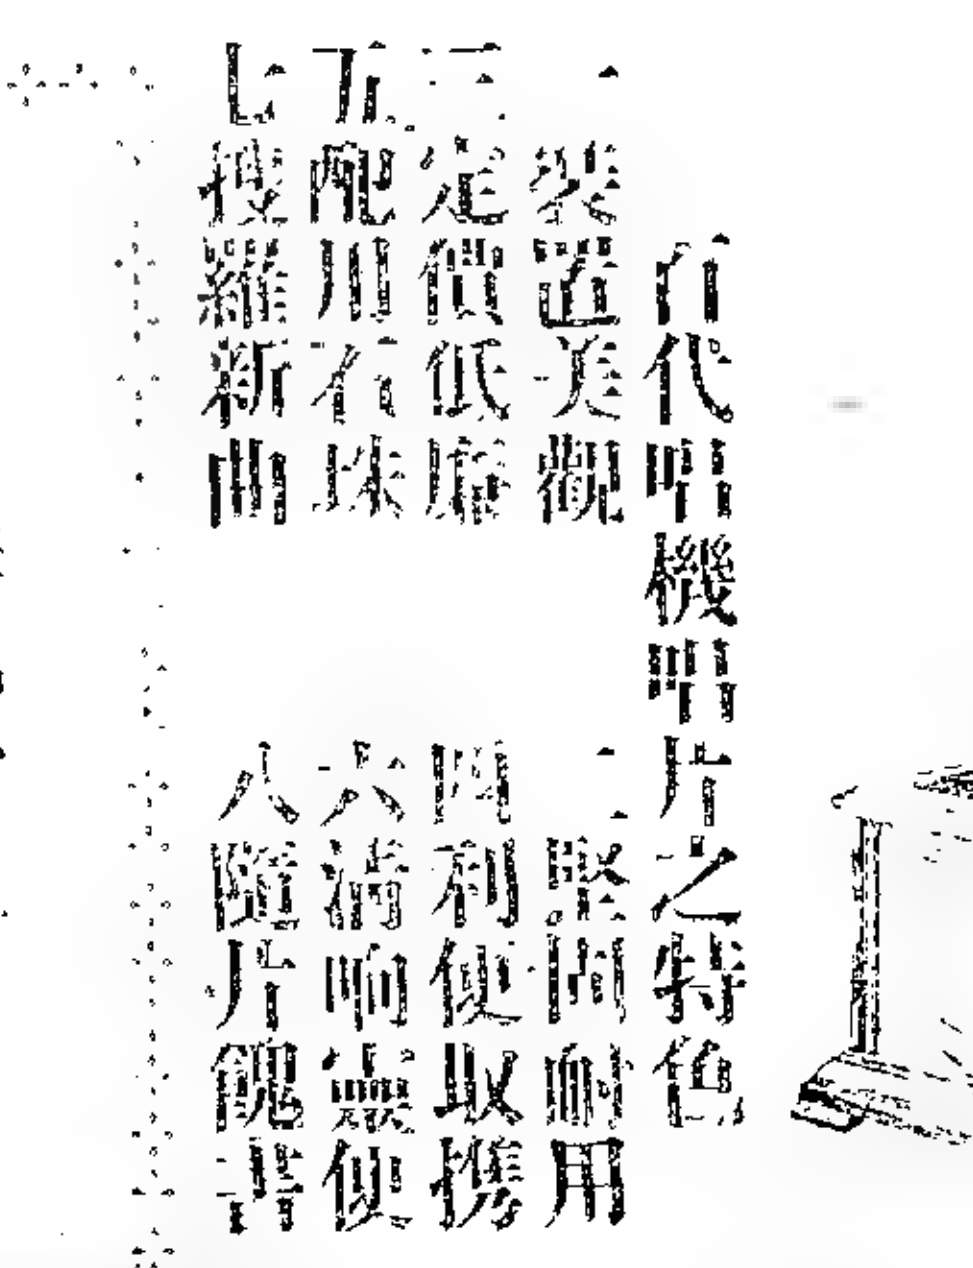 百代唱機唱片之特色
一 裝置美觀 二 堅固耐用
三 定價低廉 四 利便取携
五 配用石珠 六 清响靈便
七 搜羅新曲 八 隨片